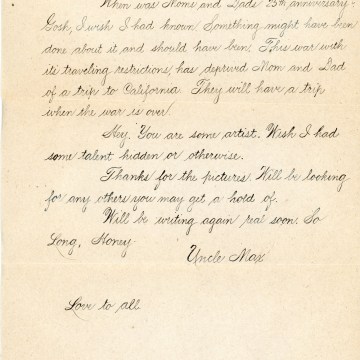 When was Moms and Dads 25th anniversary-
Gosh, I wish I had known. Something might have been
done about it and should have been. This war with
its traveling restrictions, has deprived Mom and Dad
of a trip to California. They will have a trip
when the war is over.
Hey. You are some artist. Wish I had
some talent hidden or otherwise.
Thanks for the pictures. Will be looking
for any others you may get a hold of.
Will be writing again real soon. So
Long, Honey
Uncle Max
Love to all